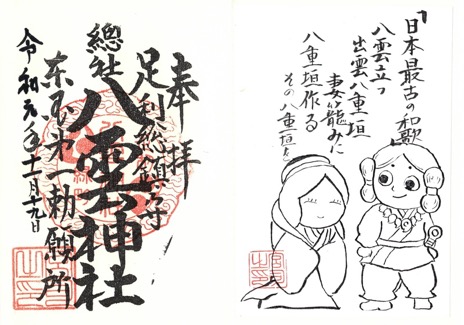 奉拝
足利総鎮守
總社八雲神社
東国第一勅願所
令和元年十一月十九日
日本最古の和歌
八雲立つ
出雲八重垣
妻籠みに
八重垣作る
その八重垣を